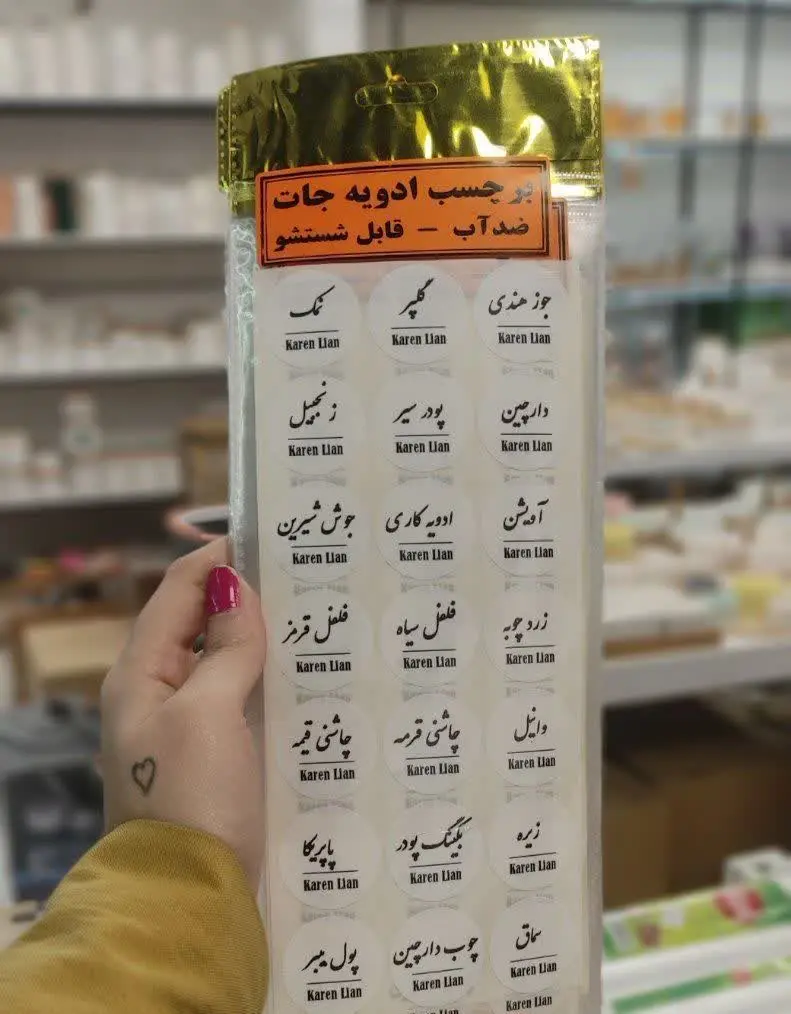 برچسب ادویه جات
ضدآب – قابل شستشو
جوز هندی
Karen Lian
گلپر
Karen Lian
نمک
Karen Lian
دارچین
Karen Lian
پودر سیر
Karen Lian
زنجبیل
Karen Lian
آویشن
Karen Lian
ادویه کاری
Karen Lian
جوش شیرین
Karen Lian
زردچوبه
Karen Lian
فلفل سیاه
Karen Lian
فلفل قرمز
Karen Lian
وانیل
Karen Lian
چاشنی قرمه
Karen Lian
چاشنی قیمه
Karen Lian
زیره
Karen Lian
بکینگ پودر
Karen Lian
پاپریکا
Karen Lian
سماق
Karen Lian
چوب دارچین
Karen Lian
پول بیبر
Karen Lian